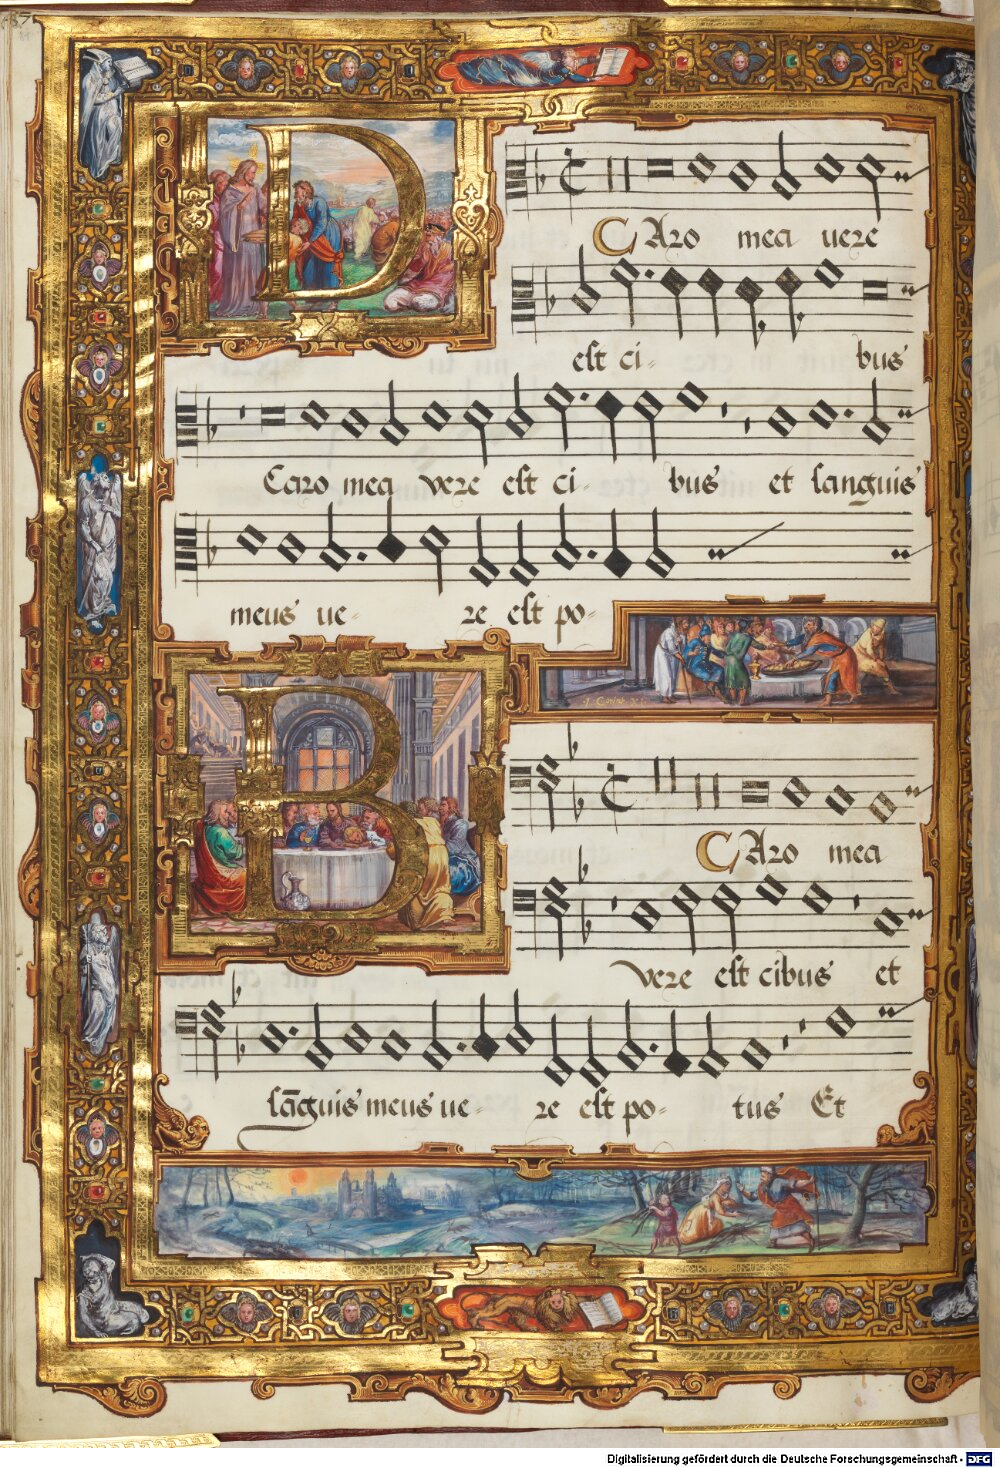 87
D
CAro mea vere
est ci- bus
Caro mea vere est ci- bus et sanguis
meus ve- re est po-
B
CAro mea
vere est cibus et
sāguis meus ve- re est po- tus Et
Digitalisierung gefördert durch die Deutsche Forschungsgemeinschaft - DFG